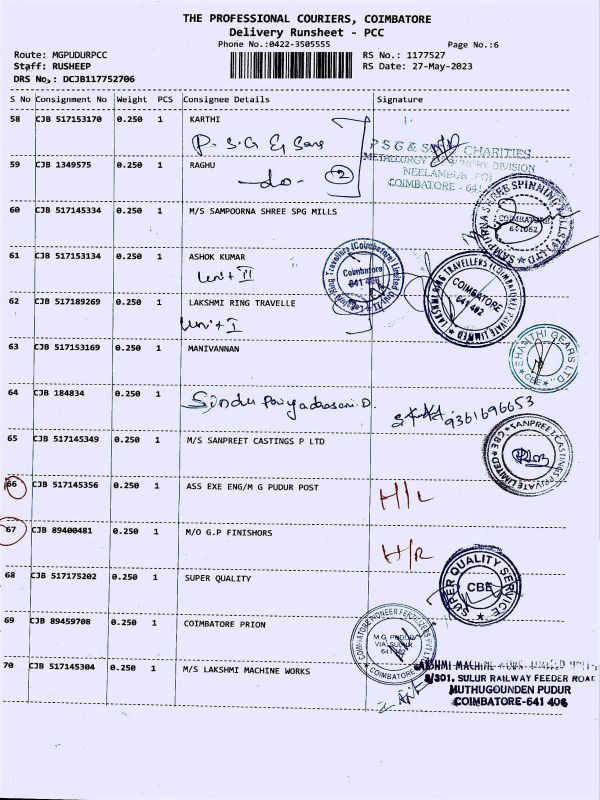 THE PROFESSIONAL COURIERS, COIMBATORE
Delivery Runsheet - PCC
Phone No.:0422-3505555 Page No.:6
Route: MGPUDURPCC RS No.: 1177527
Staff: RUSHEEP RS Date: 27-May-2023
DRS No.: DCJB117752706
S No Consignment No Weight PCS Consignee Details Signature
58 CJB 517153170 0.250 1 KARTHI
P.S.G & Sons
P S G & CHARITIES
METALLURGY & DIVISION
NEELAMBUR
COIMBATORE - 641
59 CJB 1349575 1 RAGHU
-do- 2
60 CJB 517145334 0.250 1 M/S SAMPOORNA SHREE SPG MILLS
SAMPURNA SHREE SPINNING MILLS (P) LTD
COIMBATORE
641062
61 CJB 517153134 0.250 1 ASHOK KUMAR
Unit II
Lakshmi Ring Travellers (Coimbatore) Limited
Coimbatore
62 CJB 517189269 0.250 1 LAKSHMI RING TRAVELLE
Unit I
LAKSHMI RING TRAVELLERS (COIMBATORE) PRIVATE LIMITED
COIMBATORE
641 402
63 CJB 517153169 0.250 1 MANIVANNAN
SHANTHI GEARS LTD
CBE
64 CJB 184834 0.250 1
Sindu Priyadharsani.D.
9361696653
65 CJB 517145349 0.250 1 M/S SANPREET CASTINGS P LTD
SANPREET CASTINGS PRIVATE LIMITED CBE
66 CJB 517145356 0.250 1 ASS EXE ENG/M G PUDUR POST
H/L
67 CJB 89400481 0.250 1 M/O G.P FINISHORS
H/R
68 CJB 517175202 0.250 1 SUPER QUALITY
SUPER QUALITY SERVICE
CBE
69 CJB 89459708 0.250 1 COIMBATORE PRION
COIMBATORE PIONEER FERTILIZERS
M.G. PUDUR
VIA SULUR
COIMBATORE
70 CJB 517145304 0.250 1 M/S LAKSHMI MACHINE WORKS
LAKSHMI MACHINE WORKS LIMITED
3/301, SULUR RAILWAY FEEDER ROAD
MUTHUGOUNDEN PUDUR
COIMBATORE-641 406